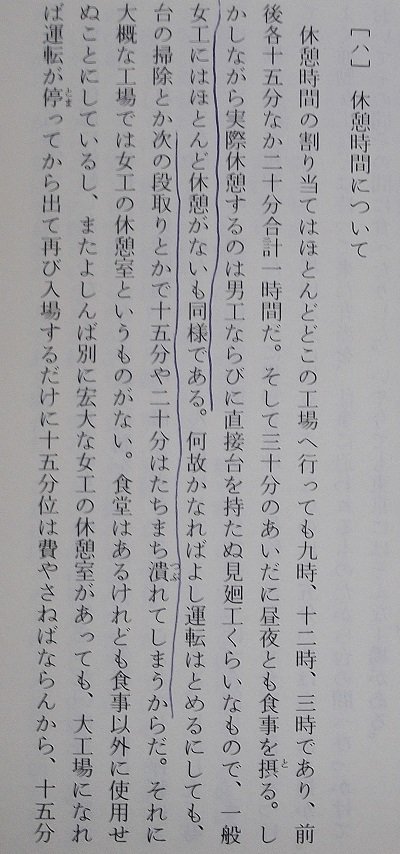 ［八］　休憩時間について
休憩時間の割り当てはほとんどどこの工場へ行っても九時、十二時、三時であり、前
後各十五分なか二十分合計一時間だ。そして三十分のあいだに昼夜とも食事を摂る。し
かしながら実際休憩するのは男工ならびに直接台を持たぬ見廻工くらいなもので、一般
女工にはほとんど休憩がないも同様である。何故かなればよし運転はとめるにしても、
台の掃除とか次の段取りとかで十五分や二十分はたちまち潰れてしまうからだ。それに
大概な工場では女工の休憩室というものがない。食堂はあるけれども食事以外に使用せ
ぬことにしているし、またよしんば別に宏大な女工の休憩室があっても、大工場になれ
ば運転が停ってから出て再び入場するだけに十五分位は費やさねばならんから、十五分